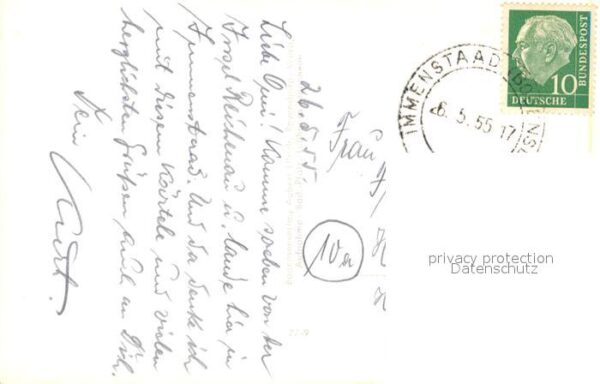 26.5.55.
Liebe Omi! Komme soeben von der
Insel Reichenau u. lande hier in
Immenstaad. Und da denke ich
mit diesem Kärtele und vielen
herzlichsten Grüßen auch an Dich.
Dein
Frau
10a
IMMENSTAAD (BODENS
26.5.55 17
10
DEUTSCHE
BUNDESPOST
privacy protection
Datenschutz